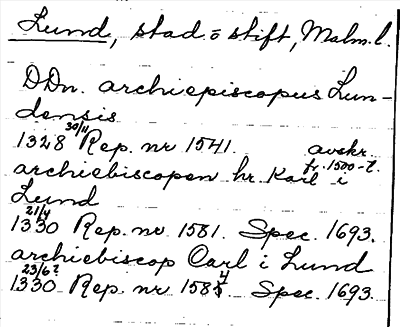 Lund, stad o stift, Malm. l.
DDn. archiepiscopus Lun-
densis
1328 30/11 Rep. nr 1541. avskr. fr. 1500-t.
archiebiscopen hr. Karl i
Lund
21/4
1330 Rep. nr 1581. Spec. 1693.
archiebiscop Carl i Lund
23/6?
1330 Rep. nr 1584 Spec. 1693